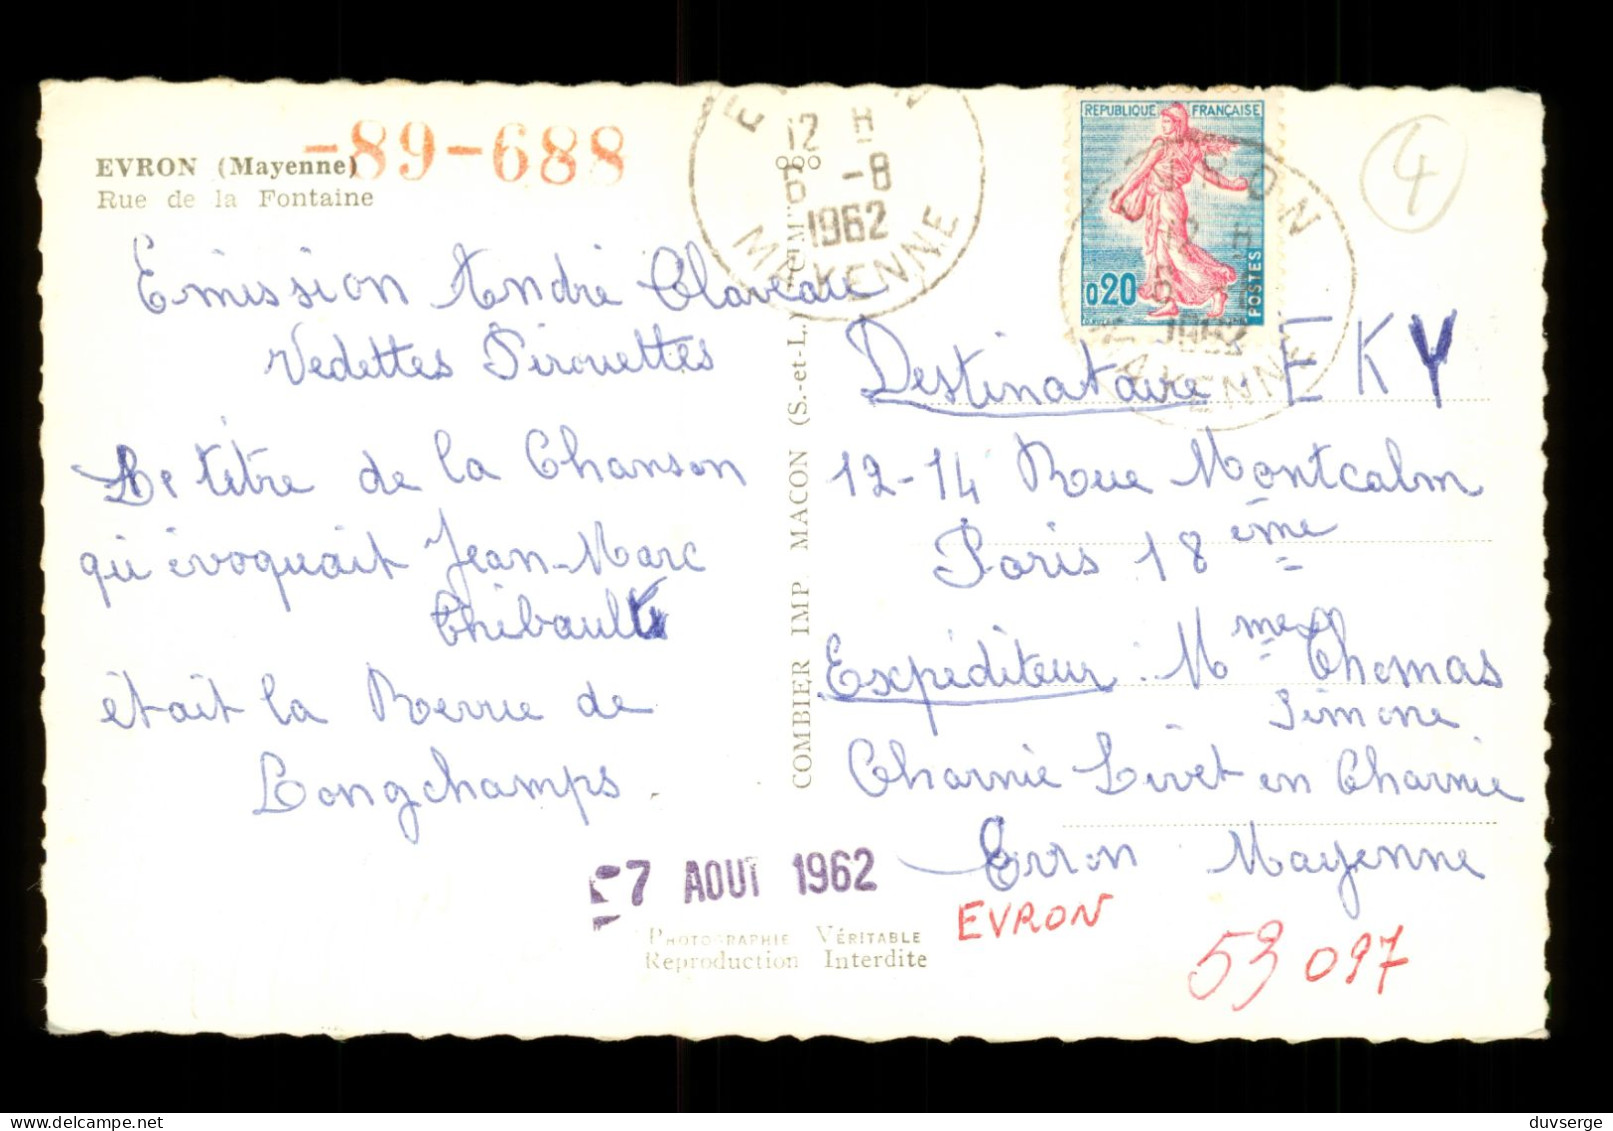 EVRON (Mayenne)
Rue de la Fontaine
-89-688
12 H
6 -8
1962
MAYENNE
REPUBLIQUE FRANÇAISE
0,20
POSTES
4
Emission André Claveau
Vedettes Pirouettes
Le titre de la Chanson
qui évoquait Jean-Marc
Thibault
était la Revue de
Longchamps
COMBIER IMP MACON (S.-et-L.)
Destinataire. EKY
12-14 Rue Montcalm
Paris 18 ème
Expéditeur. Mme Thomas
Simone
Charnie Livet en Charnie
Evron Mayenne
7 AOUT 1962
EVRON
53 097
PHOTOGRAPHIE VÉRITABLE
Reproduction Interdite
duvserge